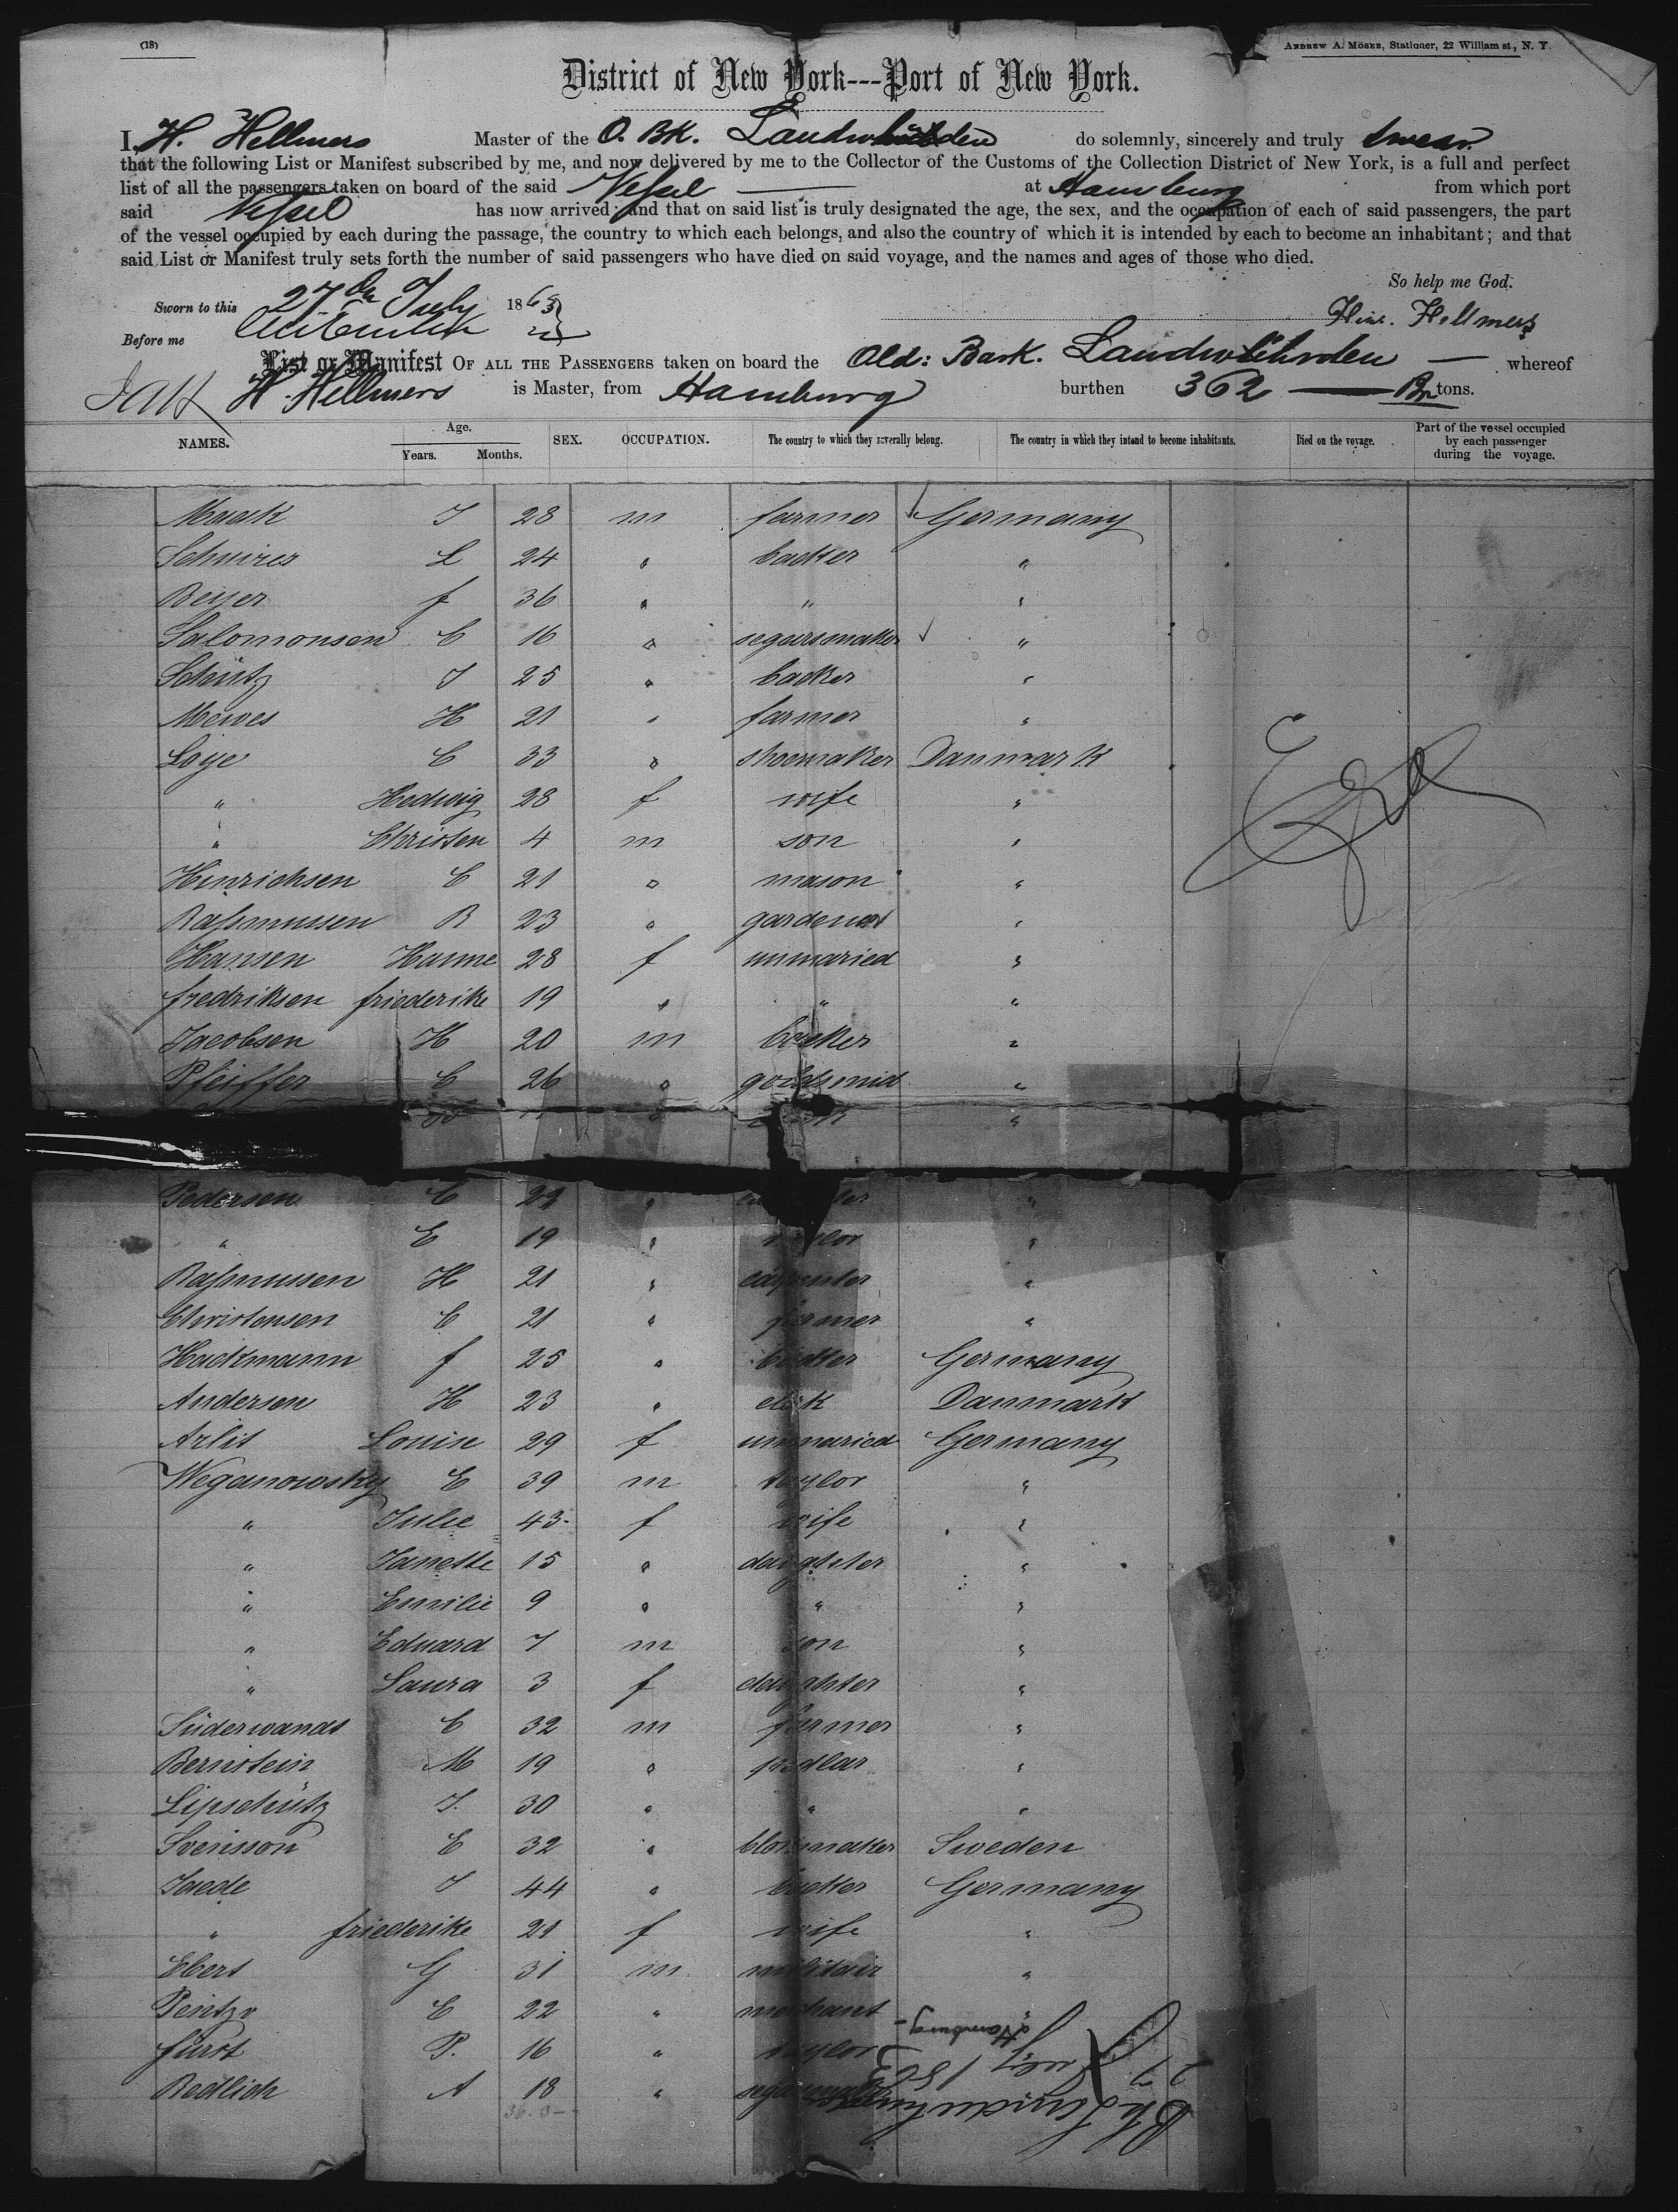 (18)
ANDREW A. MOSER, Stationer, 22 William st, N. Y.
District of New York---Port of New York.
I, H. Hellmers Master of the O. BK. Landwührden do solemnly, sincerely and truly swear
that the following List or Manifest subscribed by me, and now delivered by me to the Collector of the Customs of the Collection District of New York, is a full and perfect
list of all the passengers taken on board of the said Vessel at Hamburg from which port
said Vessel has now arrived; and that on said list is truly designated the age, the sex, and the occupation of each of said passengers, the part
of the vessel occupied by each during the passage, the country to which each belongs, and also the country of which it is intended by each to become an inhabitant; and that
said List or Manifest truly sets forth the number of said passengers who have died on said voyage, and the names and ages of those who died.
So help me God.
Sworn to this 27th July 1863
Hinr. Hellmers
Before me
List or Manifest OF ALL THE PASSENGERS taken on board the Old: Bark. Landwührden — whereof
H. Hellmers is Master, from Hamburg burthen 362 — tons.
NAMES. Age. Years. Months. SEX. OCCUPATION. The country to which they severally belong. The country in which they intend to become inhabitants. Died on the voyage. Part of the vessel occupied by each passenger during the voyage.
Maak J 28 m farmer Germany
Schmires L 24 " backer "
Beyer f 36 " " "
Salomonsen C 16 " segarsmaker "
Schütz J 25 " backer "
Mewes H 21 " farmer "
Loye C 33 " shoemaker Danmark
" Hedwig 28 f wife "
" Christen 4 m son "
Hinrichsen C 21 " mason "
Rassmussen R 23 " gardener "
Hansen Hanne 28 f unmaried "
fredriksen friederike 19 " " "
Jacobsen H 20 m backer "
Pfeiffer C 26 " goldsmid "
Pedersen C 29 " "
" E 19 " taylor "
Rassmussen H 21 " carpenter "
Christensen C 21 " farmer "
Hackmann f 25 " backer Germany
Andersen H 23 " clerk Danmark
Arlit Louise 29 f unmaried Germany
Weganowsky E 39 m taylor "
" Julie 43 f wife "
" Janette 15 " daughter "
" Emilie 9 " " "
" Eduard 7 m son "
" Laura 3 f daughter "
Süderwandt C 32 m farmer "
Bernstein M 19 " pedlar "
Lipschütz J. 30 " " "
Svensson E 32 " Sweden
Jaede J 44 " backer Germany
" friederike 21 f wife "
Ebert G 31 m militair "
Pentzo E 22 " mechant "
fürst P. 16 " taylor
Redlich A 18 "
Hamburg
27 July 1863